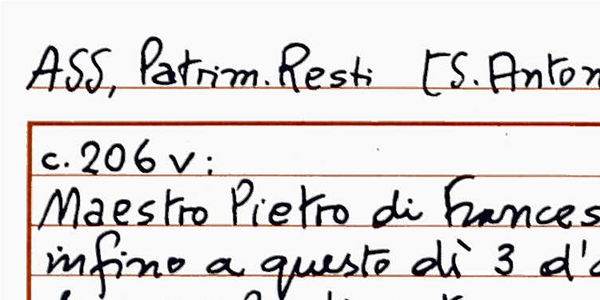 ASS, Patrim. Resti [S. Anton
c. 206 v:
Maestro Pietro di Frances
infino a questo dì 3 d'